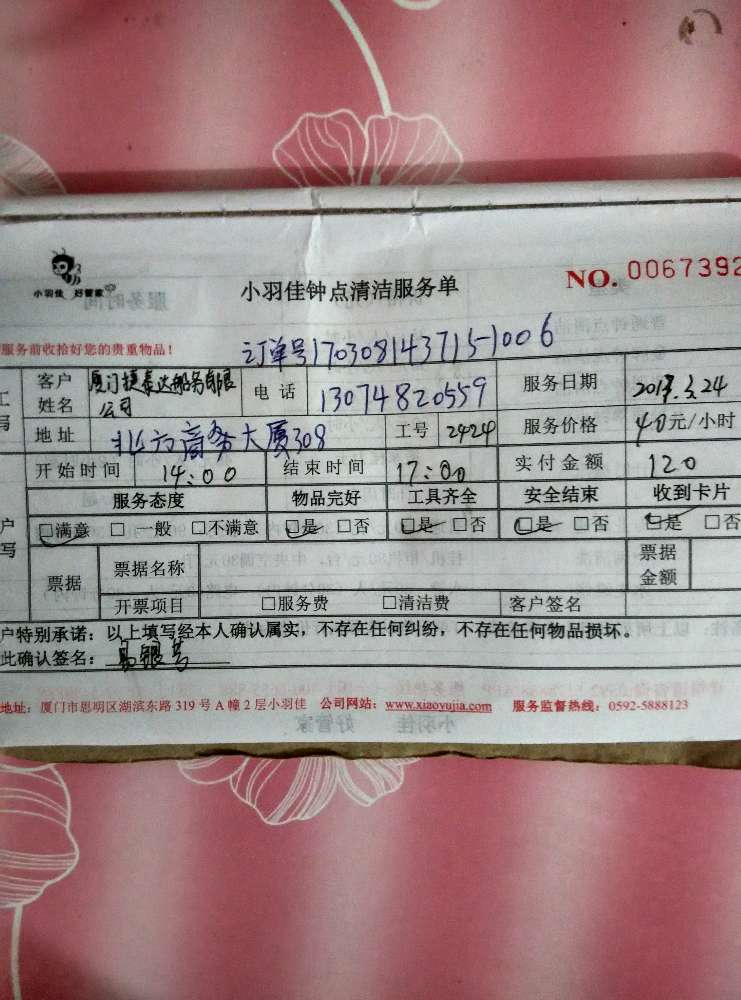 小羽佳 好管家
小羽佳钟点清洁服务单
NO. 0067392
服务前收拾好您的贵重物品！
订单号170308143715-1006
客户姓名 厦门捷泰达船务有限公司 电话 13074820559 服务日期 2017.3.24
地址 北方商务大厦308 工号 2424 服务价格 40元/小时
开始时间 14:00 结束时间 17:00 实付金额 120
服务态度 物品完好 工具齐全 安全结束 收到卡片
□满意 □一般 □不满意 □是 □否 □是 □否 □是 □否 □是 □否
票据 票据名称 票据金额
开票项目 □服务费 □清洁费 客户签名
户特别承诺：以上填写经本人确认属实，不存在任何纠纷，不存在任何物品损坏。
此确认签名：
地址：厦门市思明区湖滨东路 319 号 A 幢 2 层小羽佳 公司网站：www.xiaoyujia.com 服务监督热线：0592-5888123